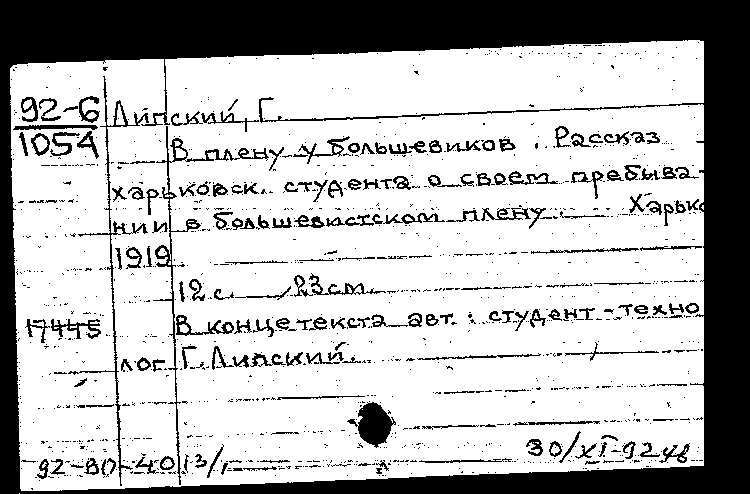 92-6 Липский, Г.
1054
В плену у большевиков. Рассказ
харьковск. студента о своем пребыва-
нии в большевистском плену. Харько
1919
12 с. 23 см.
17445 В конце текста авт.: студент-техно
лог Г. Липский.
92-80-4013/1
30/XI-92